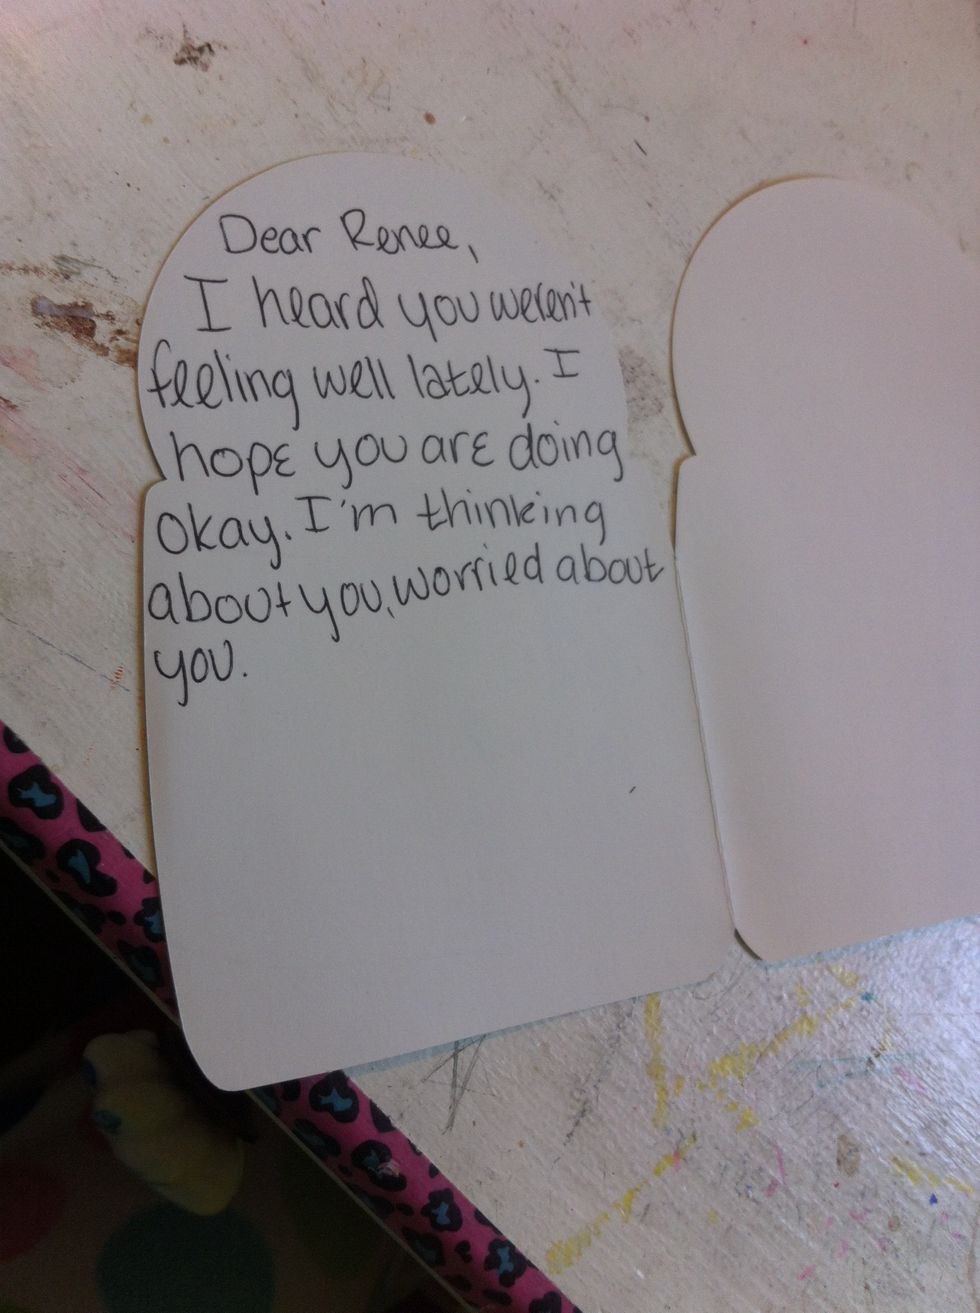 Dear Renee,
I heard you weren't
feeling well lately. I
hope you are doing
okay. I'm thinking
about you, worried about
you.